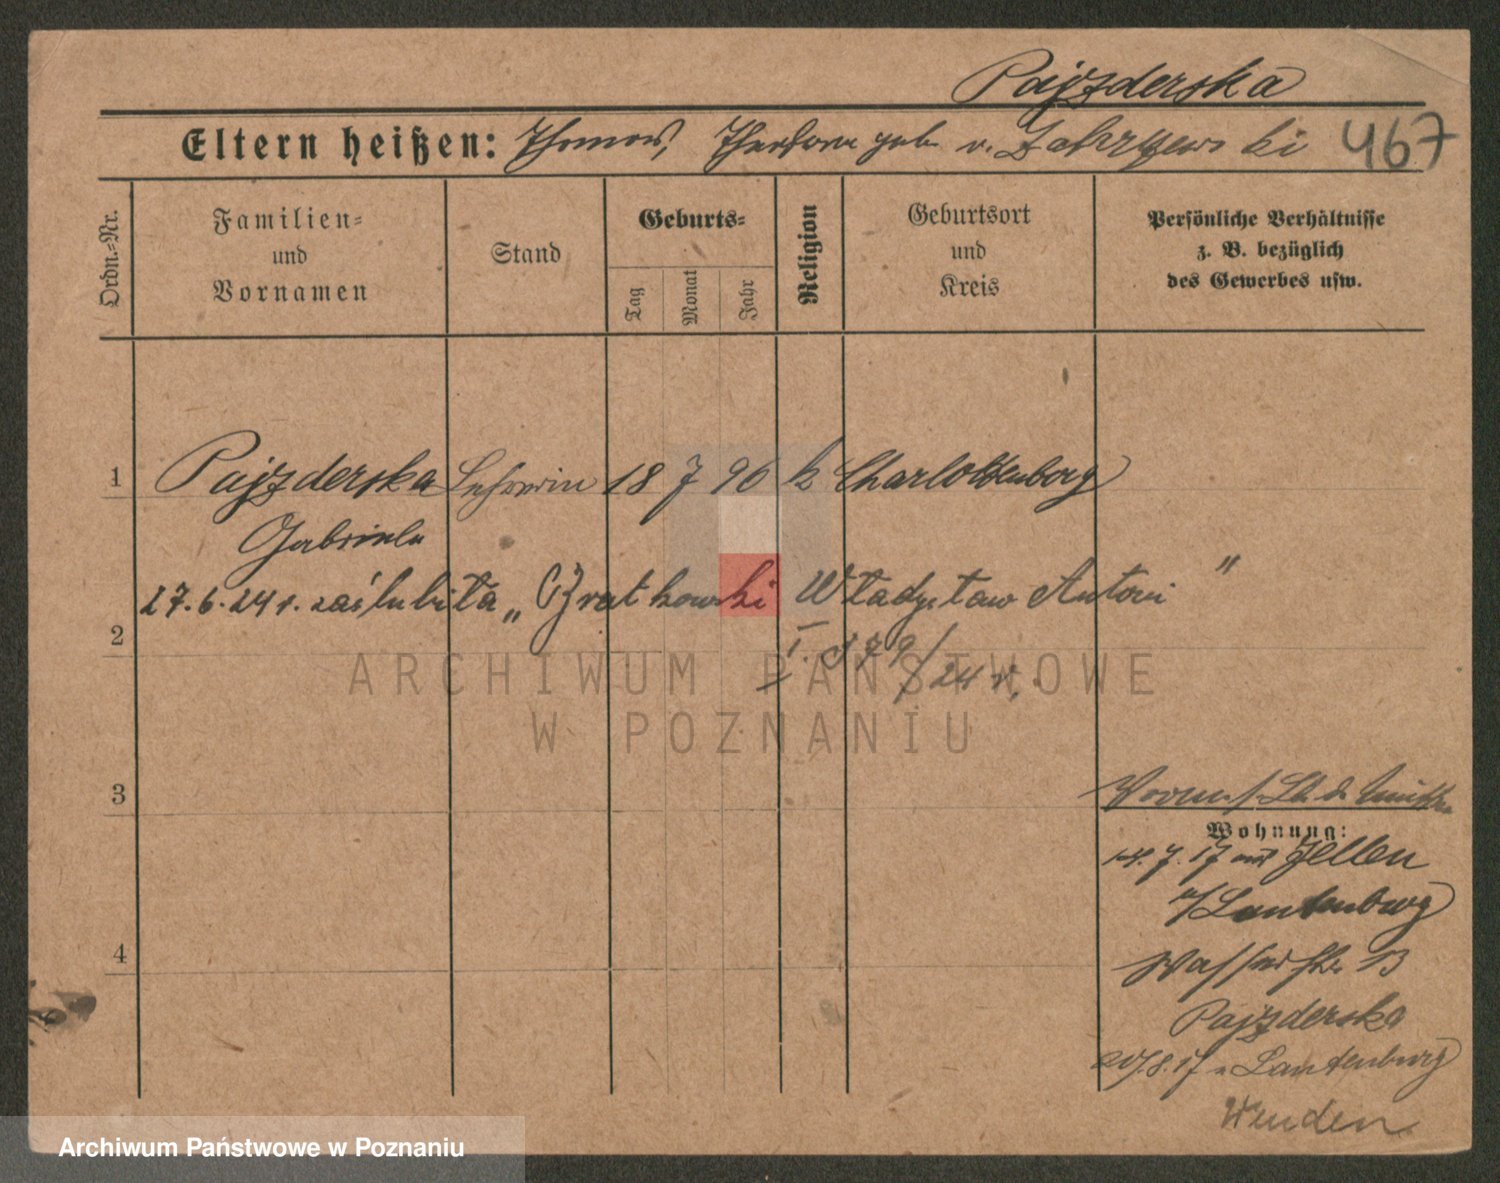 Pajzderska
Eltern heißen: Thomas, Theodora geb. v. Zakrzewski 467
Ordn.-Nr.
Familien-
und
Vornamen
Stand
Geburts-
Tag
Monat
Jahr
Religion
Geburtsort
und
Kreis
Persönliche Verhältnisse
z. B. bezüglich
des Gewerbes usw.
1 Pajzderska Lehrerin 18 7 96 k Charlottenburg
Gabriela
27.6.24 r. zaślubiła „Czratkowski Władysław Antoni"
2
I. 579/24 r.
3
Wohnung:
14.7.17 aus Jellen
b/Lautenburg
4
Wasserstr. 13
Pajzderska
20/8.17 n Lautenburg
Wenden
ARCHIWUM PAŃSTWOWE
W POZNANIU
Archiwum Państwowe w Poznaniu